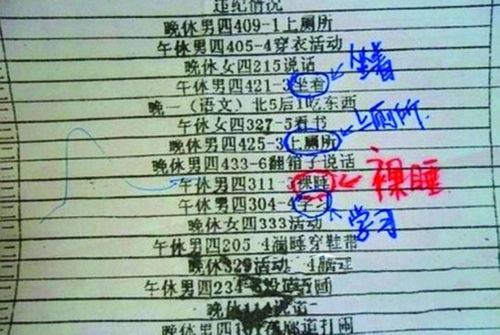 违纪情况
晚休男四409-1上厕所
午休男四405-4穿衣活动
晚休女四215说话
午休男四421-3坐着
坐着
晚一（语文）北5后1吃东西
午休女四327-5看书
晚休男四425-3上厕所
上厕所
晚休男四433-6翻箱子说话
午休男四311-3裸睡
裸睡
午休男四304-4学习
学习
晚休女四333活动
午休男四205-4湍睡穿鞋带
晚休329活动
午休男四234
晚休
晚休男四 打闹